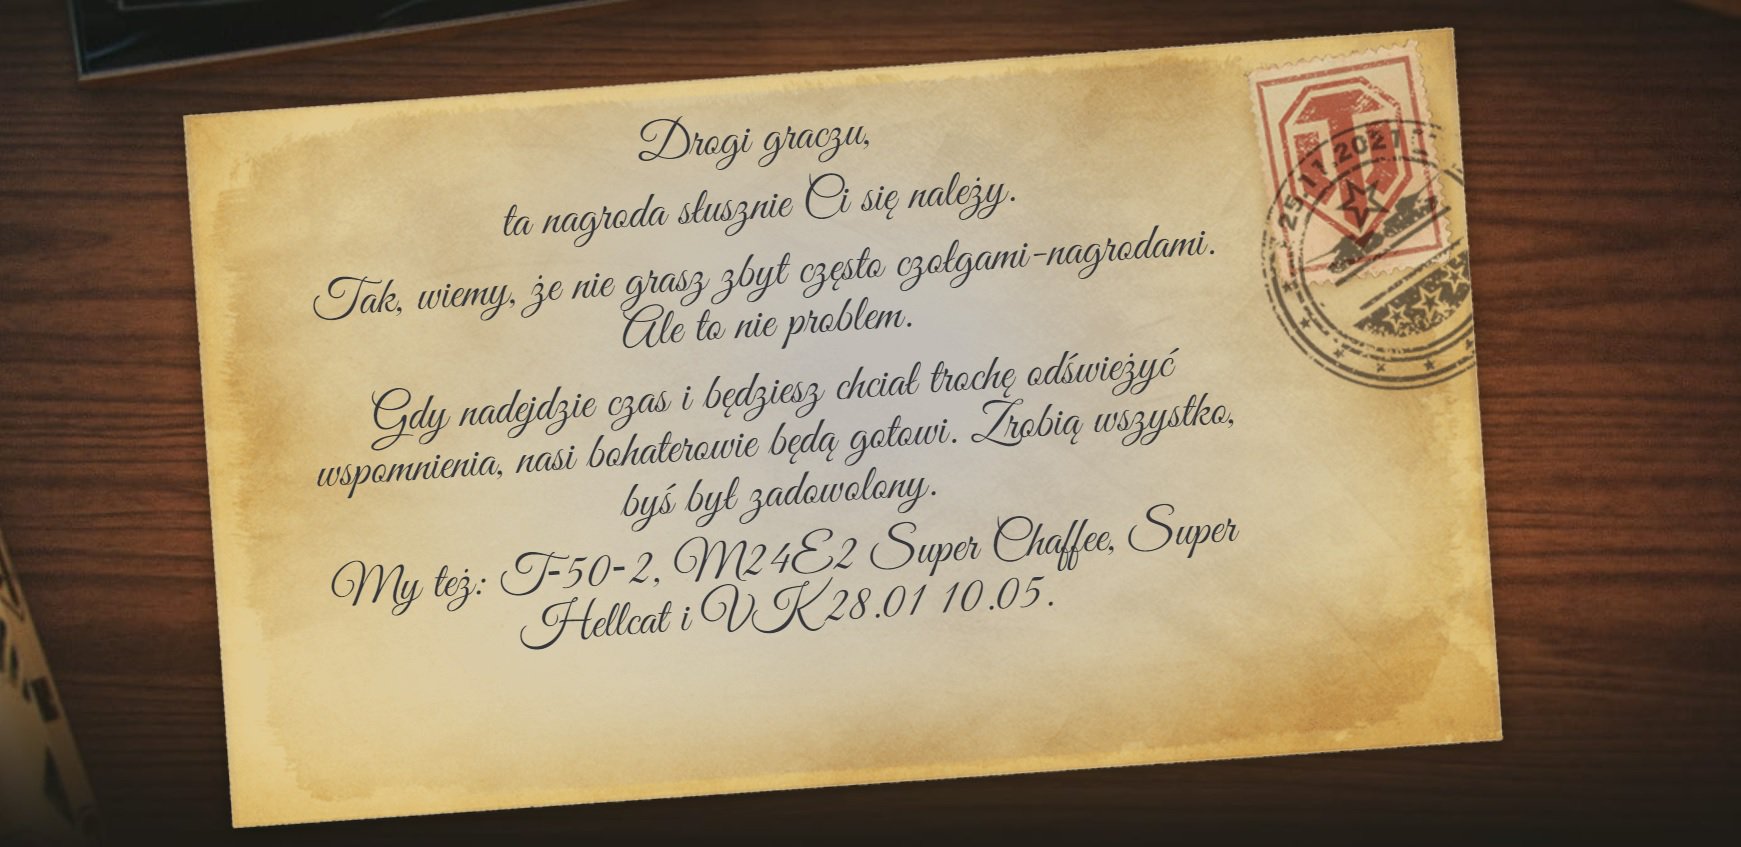 Drogi graczu,
ta nagroda słusznie Ci się należy.
Tak, wiemy, że nie grasz zbyt często czołgami-nagrodami.
Ale to nie problem.
Gdy nadejdzie czas i będziesz chciał trochę odświeżyć
wspomnienia, nasi bohaterowie będą gotowi. Zrobią wszystko,
byś był zadowolony.
My też: T-50-2, M24E2 Super Chaffee, Super
Hellcat i VK28.01 10.05.
25.11.2021